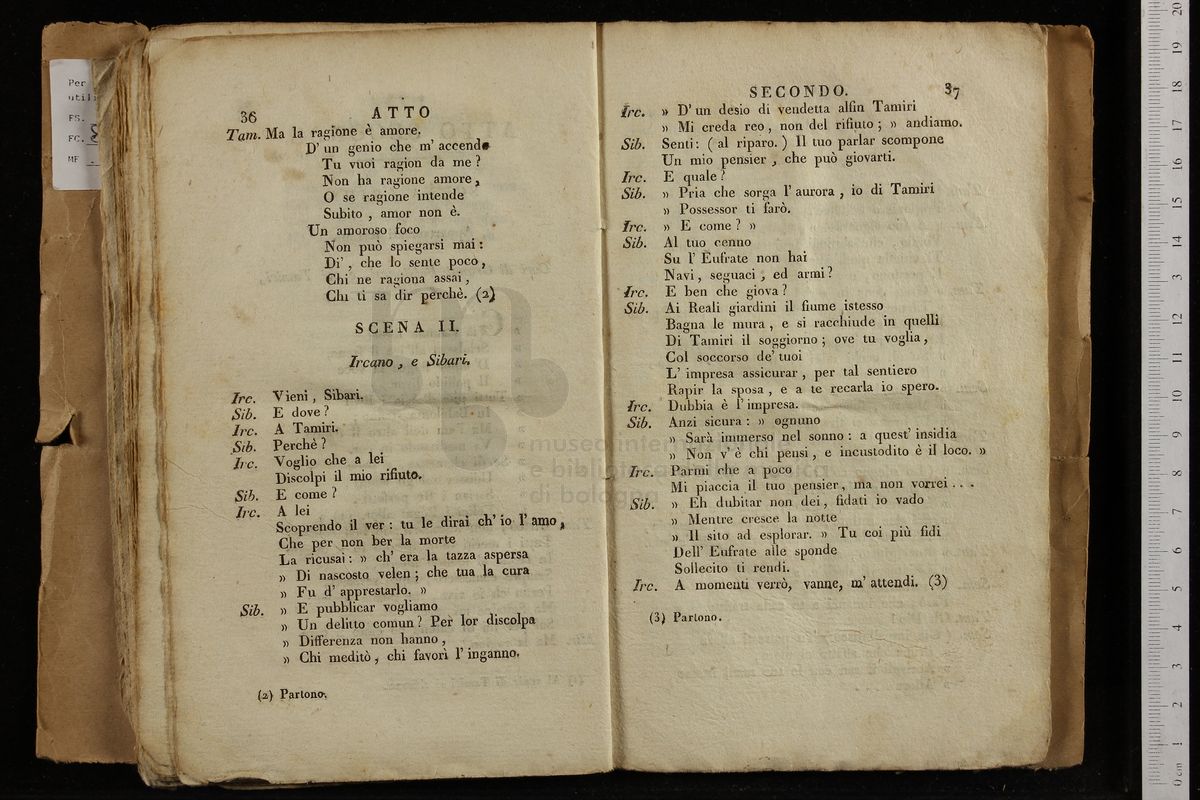 Per
utili
FS.
FC.
MF
36
ATTO
Tam. Ma la ragione è amore.
D' un genio che m' accende
Tu vuoi ragion da me ?
Non ha ragione amore,
O se ragione intende
Subito , amor non è.
Un amoroso foco
Non può spiegarsi mai :
Di' , che lo sente poco,
Chi ne ragiona assai ,
Chi ti sa dir perchè. (2)
SCENA II.
Ircano , e Sibari.
Irc. Vieni , Sibari.
Sib. E dove ?
Irc. A Tamiri.
Sib. Perchè ?
Irc. Voglio che a lei
Discolpi il mio rifiuto.
Sib. E come ?
Irc. A lei
Scoprendo il ver : tu le dirai ch' io l' amo,
Che per non ber la morte
La ricusai : » ch' era la tazza aspersa
» Di nascosto velen ; che tua la cura
» Fu d' apprestarlo. »
Sib. » E pubblicar vogliamo
» Un delitto comun ? Per lor discolpa
» Differenza non hanno ,
» Chi meditò , chi favorì l' inganno.
(2) Partono.
SECONDO.
37
Irc. » D' un desio di vendetta alfin Tamiri
» Mi creda reo , non del rifiuto ; » andiamo.
Sib. Senti : ( al riparo. ) Il tuo parlar scompone
Un mio pensier , che può giovarti.
Irc. E quale ?
Sib. » Pria che sorga l' aurora , io di Tamiri
» Possessor ti farò.
Irc. » E come ? »
Sib. Al tuo cenno
Su l' Eufrate non hai
Navi , seguaci , ed armi ?
Irc. E ben che giova ?
Sib. Ai Reali giardini il fiume istesso
Bagna le mura , e si racchiude in quelli
Di Tamiri il soggiorno ; ove tu voglia ,
Col soccorso de' tuoi
L' impresa assicurar , per tal sentiero
Rapir la sposa , e a te recarla io spero.
Irc. Dubbia è l' impresa.
Sib. Anzi sicura : » ognuno
» Sarà immerso nel sonno : a quest' insidia
» Non v' è chi pensi , e incustodito è il loco. »
Irc. Parmi che a poco
Mi piaccia il tuo pensier , ma non vorrei . . .
Sib. » Eh dubitar non dei , fidati io vado
» Mentre cresce la notte
» Il sito ad esplorar. » Tu coi più fidi
Dell' Eufrate alle sponde
Sollecito ti rendi.
Irc. A momenti verrò, vanne, m' attendi. (3)
(3) Partono.
museo internazionale
e biblioteca della musica
di bologna
0 cm 1 2 3 4 5 6 7 8 9 10 11 12 13 14 15 16 17 18 19 20